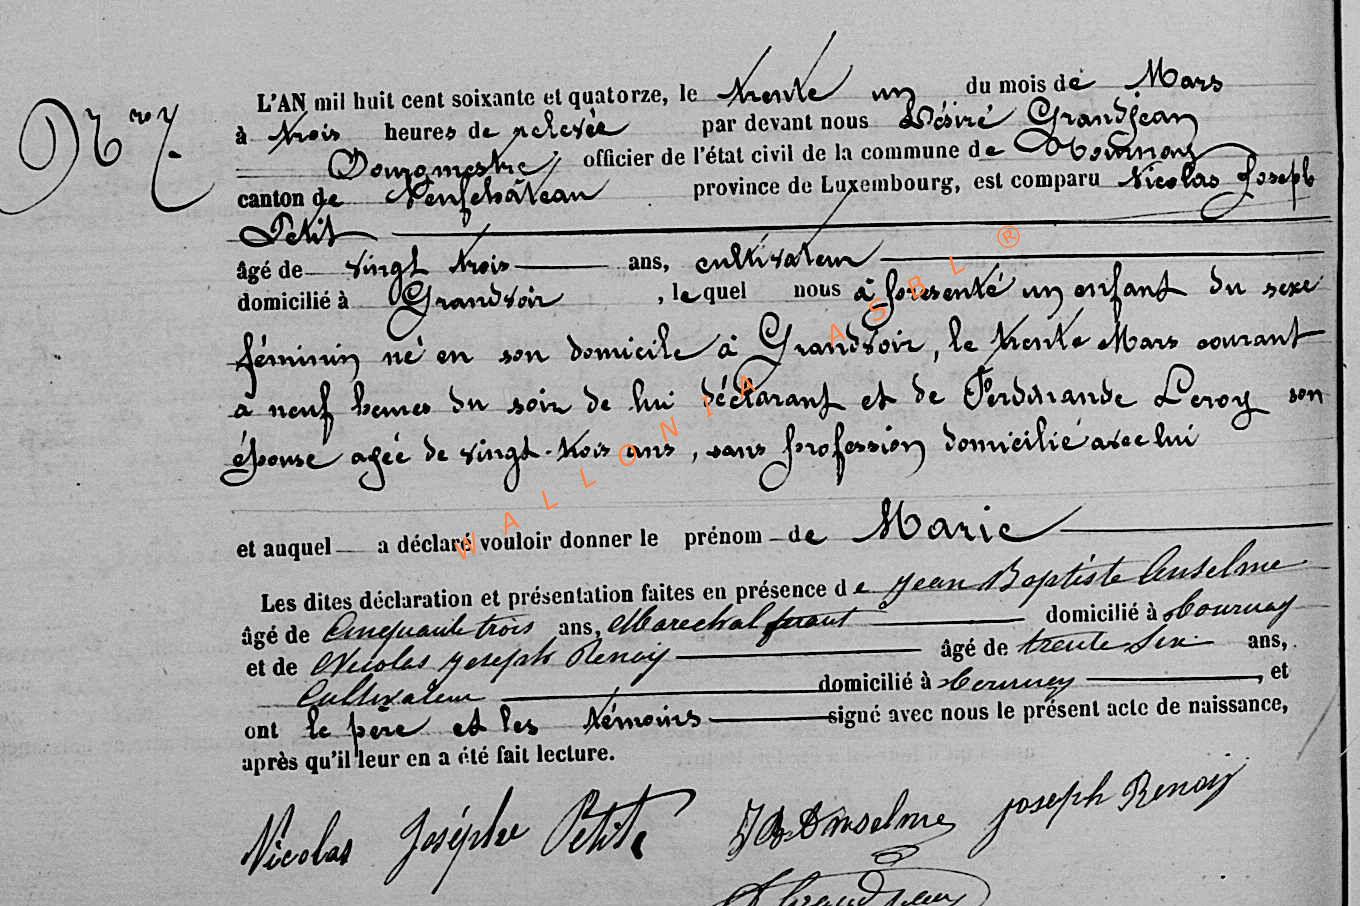 Nro 7.
L'AN mil huit cent soixante et quatorze, le trente un du mois de Mars
à trois heures de relevée par devant nous Désiré Grandjean
Bourgmestre, officier de l'état civil de la commune de Tournay
canton de Neufchâteau province de Luxembourg, est comparu Nicolas Joseph
Petit
âgé de vingt trois ans, cultivateur
domicilié à Grandvoir, lequel nous à présenté un enfant du sexe
féminin né en son domicile à Grandvoir, le trente Mars courant
à neuf heures du soir de lui déclarant et de Ferdinande Leroy son
épouse agée de vingt-trois ans, sans profession domicilié avec lui
et auquel a déclaré vouloir donner le prénom de Marie
Les dites déclaration et présentation faites en présence de Jean Baptiste Anselme
âgé de Cinquante trois ans, Marechal ferant domicilié à Tournay
et de Nicolas Joseph Renoy âgé de trente six ans,
Cultivateur domicilié à Tournay, et
ont le père et les témoins signé avec nous le présent acte de naissance,
après qu'il leur en a été fait lecture.
Nicolas Joséphe Petit JB Anselme Joseph Renoy
D Grandjean
WALLONIA ASBL ®